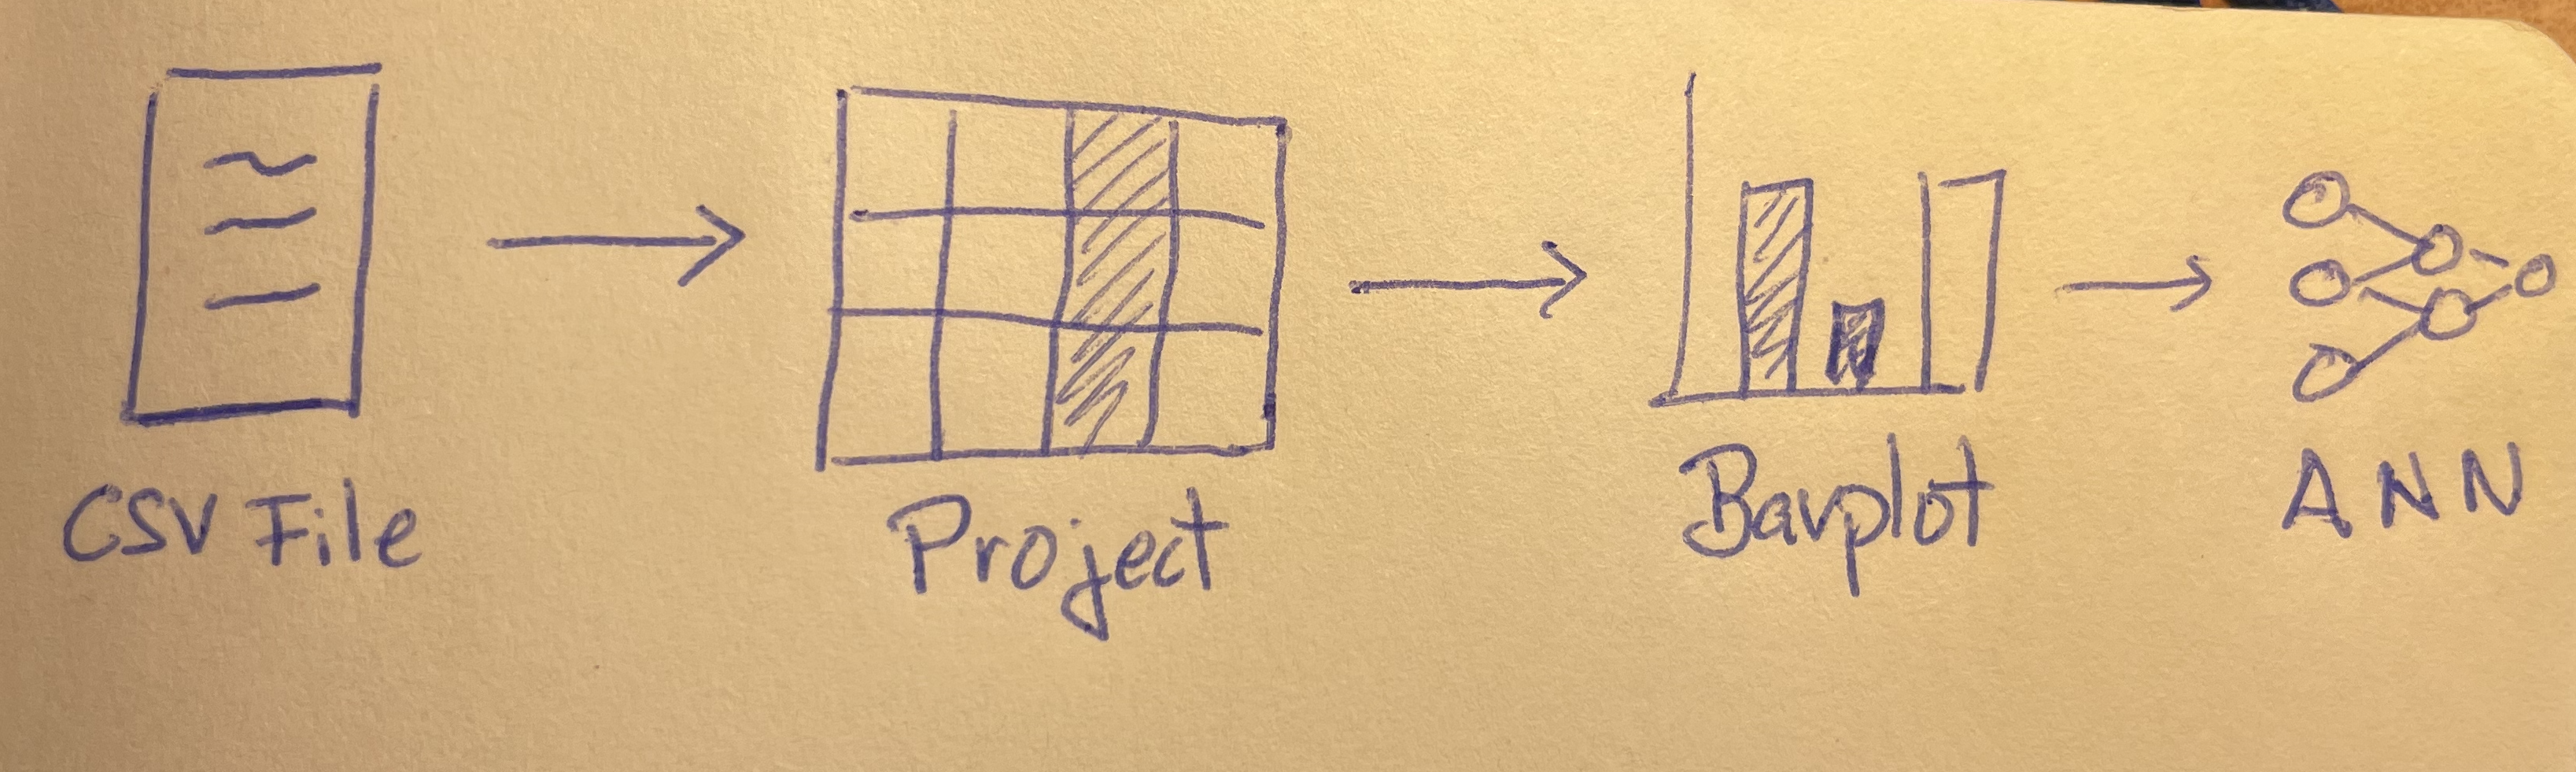 CSV File
Project
Barplot
ANN